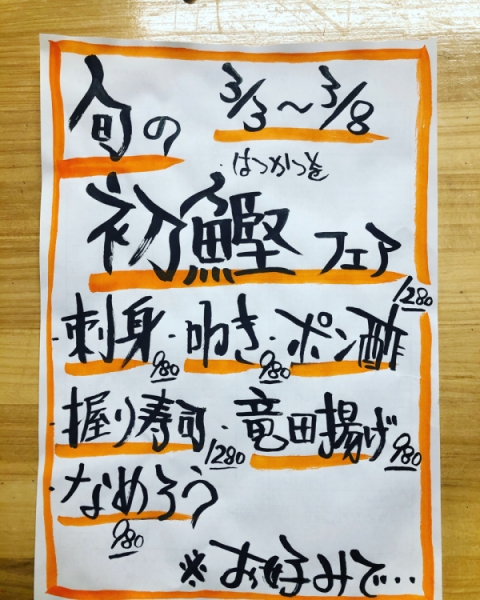 旬の 3/3～3/8
はつかつを
初鰹 フェア
・刺身 980 ・叩き 980 ・ポン酢 1280
・握り寿司 1280 ・竜田揚げ 980
・なめろう 980
※お好みで…